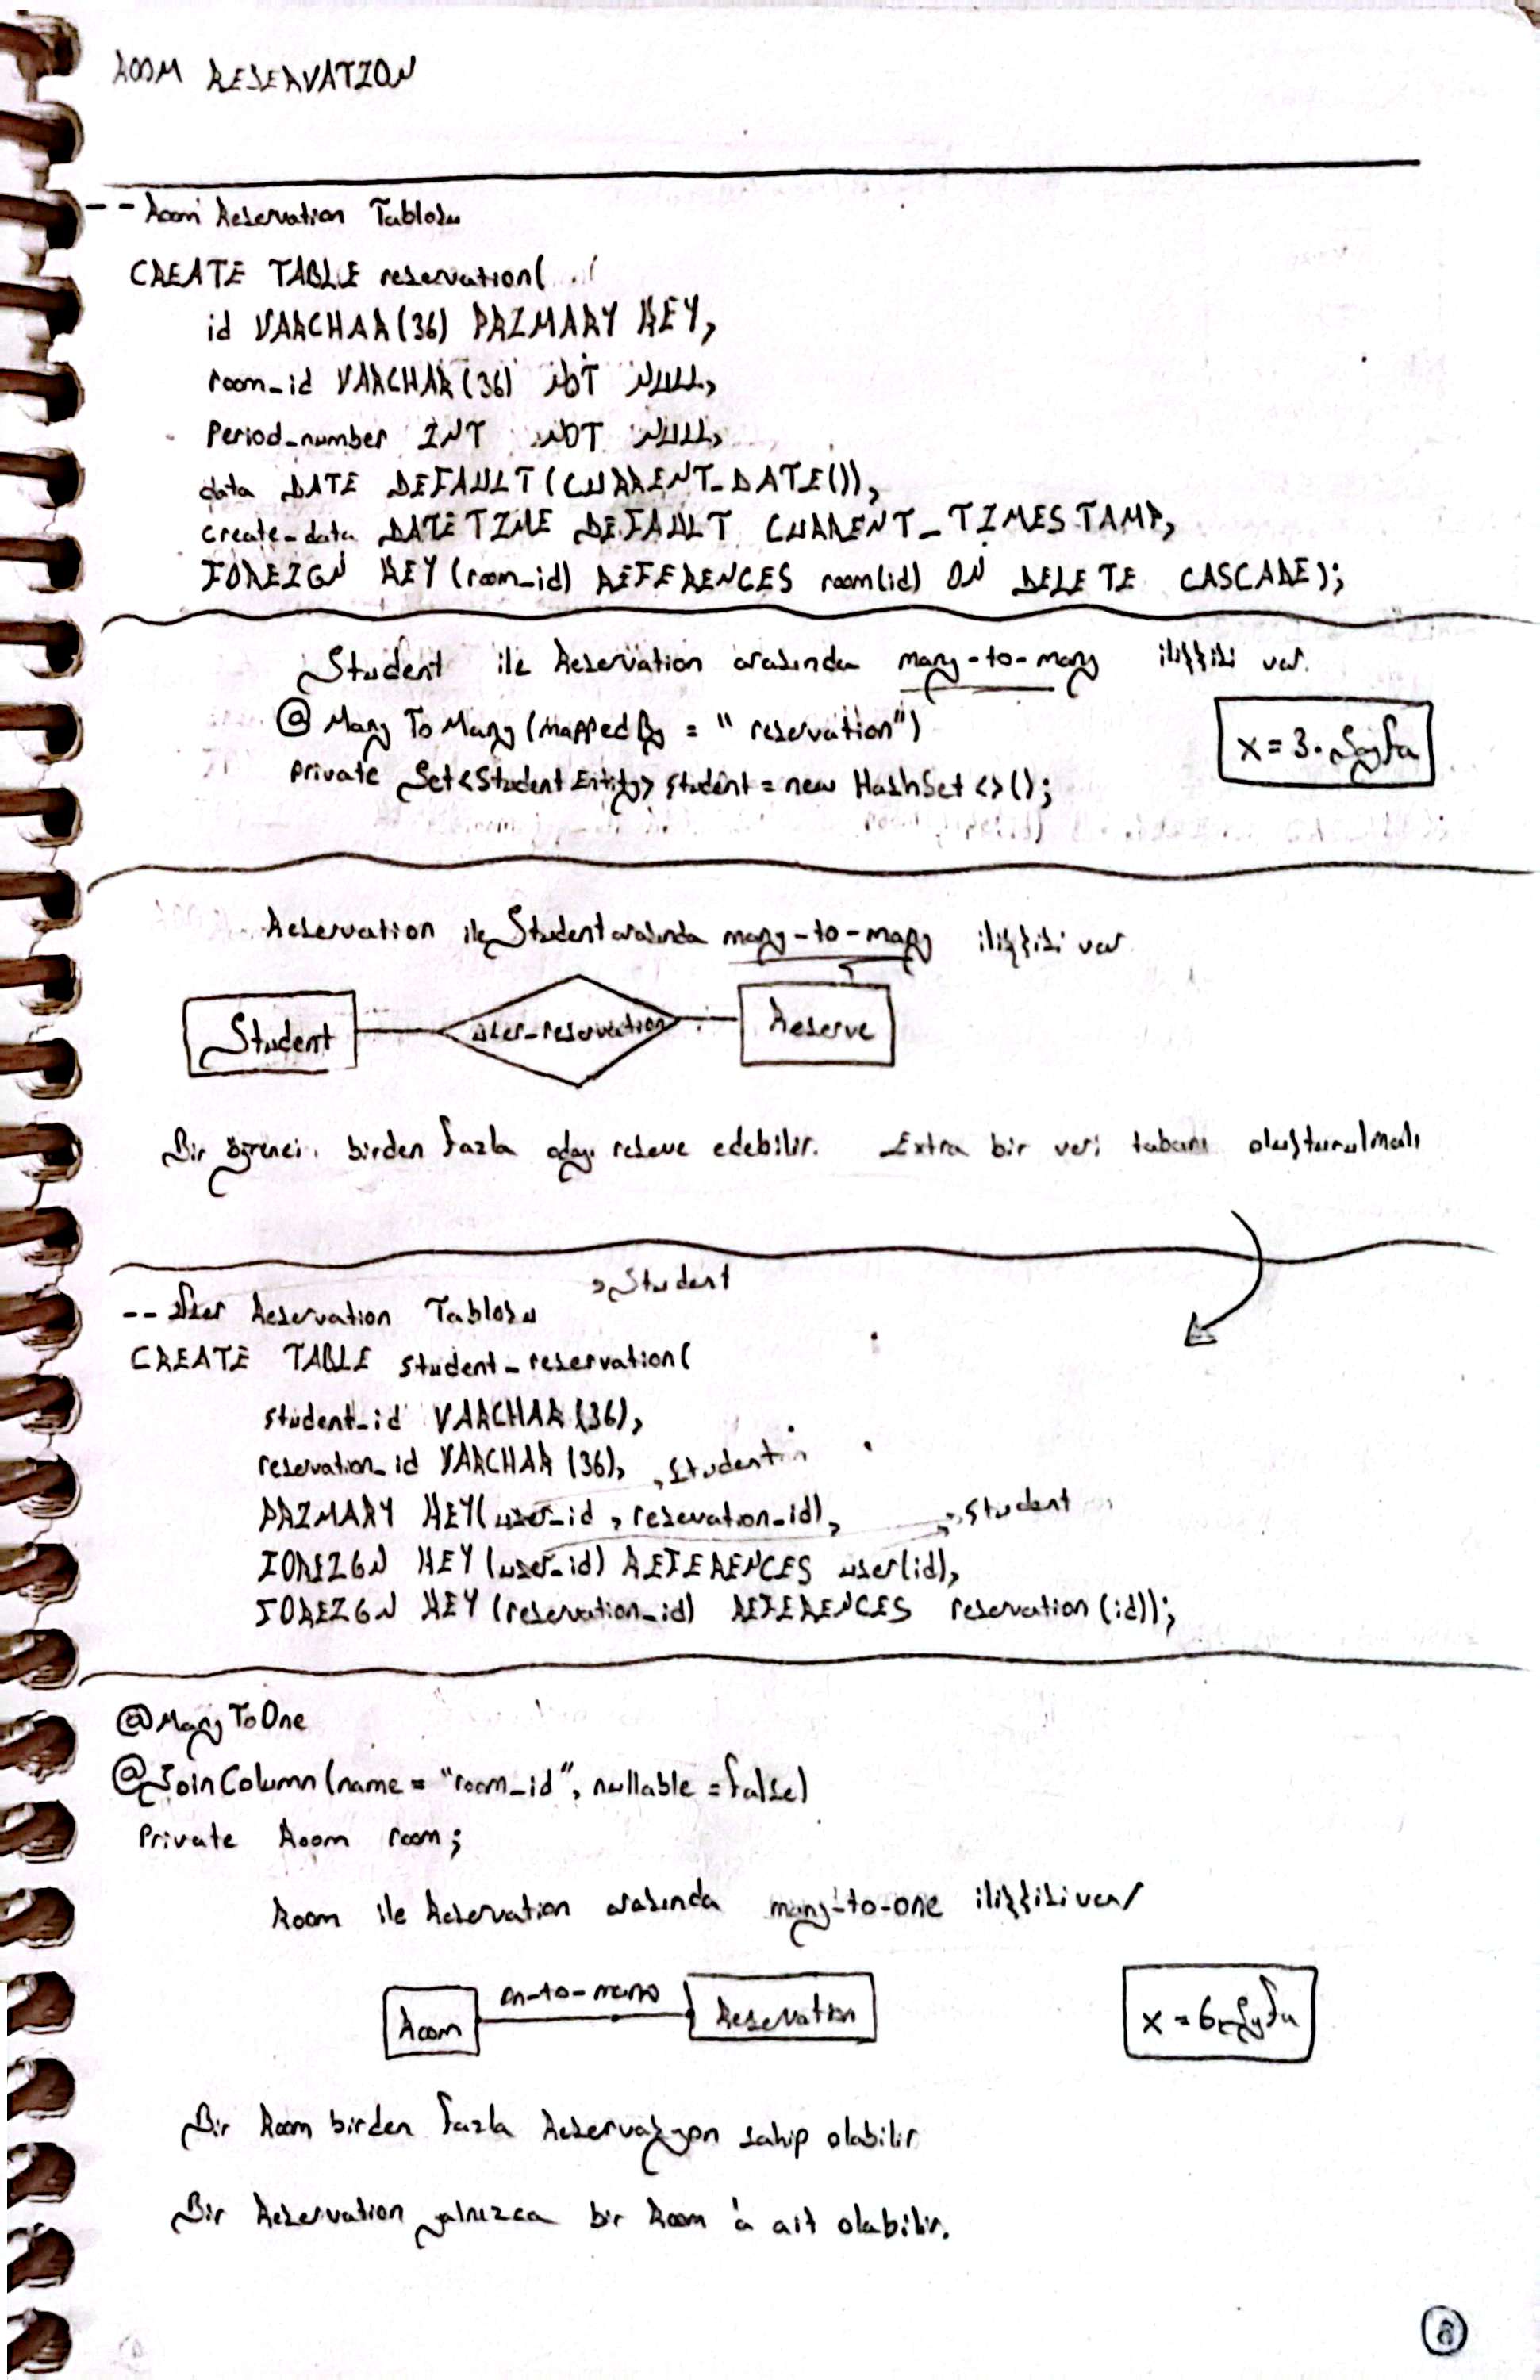 ROOM RESERVATION
-- Room Reservation Tablosu
CREATE TABLE reservation(
id VARCHAR(36) PRIMARY KEY,
room_id VARCHAR(36) NOT NULL,
Period_number INT NOT NULL,
data DATE DEFAULT (CURRENT_DATE()),
create_data DATETIME DEFAULT CURRENT_TIMESTAMP,
FOREIGN KEY (room_id) REFERENCES room(id) ON DELETE CASCADE);
Student ile Reservation arasında many-to-many ilişkisi var.
@ManyToMany(mappedBy = "reservation")
private Set<StudentEntity> student = new HashSet<>();
x = 3. Sayfa
Reservation ile Student arasında many-to-many ilişkisi var
Student
user-reservation
Reserve
Bir öğrenci birden fazla odayı reseve edebilir. Extra bir veri tabanı oluşturulmalı
Student
-- User Reservation Tablosu
CREATE TABLE student_reservation(
student_id VARCHAR(36),
reservation_id VARCHAR(36),
Student
PRIMARY KEY(user_id, reservation_id),
Student
FOREIGN KEY (user_id) REFERENCES user(id),
FOREIGN KEY (reservation_id) REFERENCES reservation(id));
@ManyToOne
@JoinColumn(name = "room_id", nullable = false)
Private Room room;
Room ile Reservation arasında many-to-one ilişkisi var
Room
Reservation
x = 6. Sayfa
Bir Room birden fazla Reservasyon sahip olabilir
Bir Reservation yalnızca bir Room'a ait olabilir.